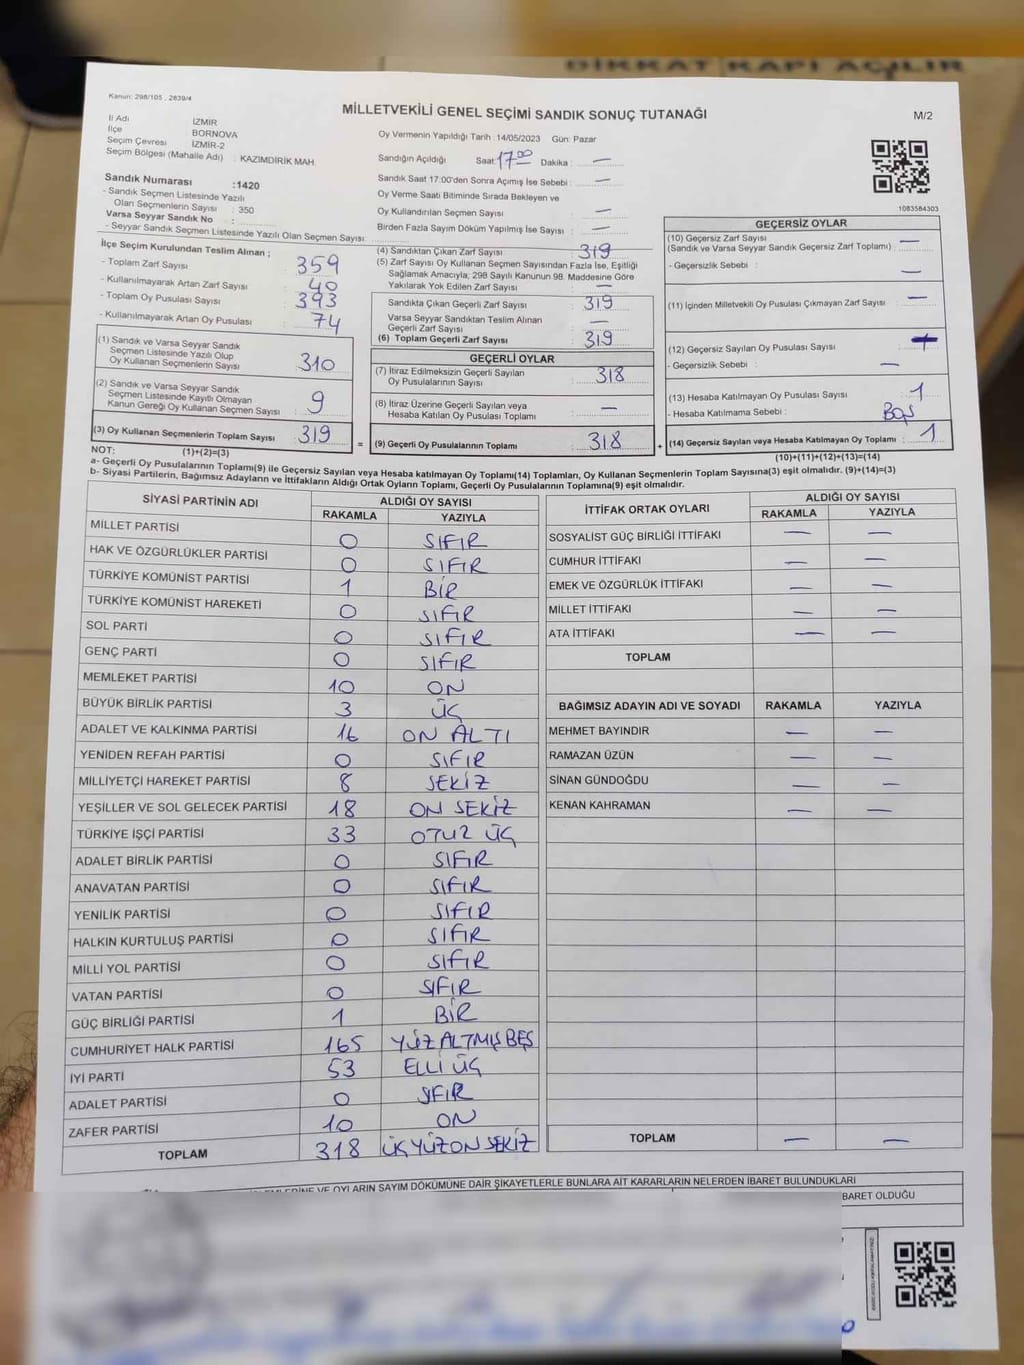 DİKKAT KAPI AÇILIR
Kanun: 298/105 , 2839/4
MİLLETVEKİLİ GENEL SEÇİMİ SANDIK SONUÇ TUTANAĞI
M/2
İl Adı İZMİR
İlçe BORNOVA
Seçim Çevresi İZMİR-2
Seçim Bölgesi (Mahalle Adı) : KAZIMDİRİK MAH.
Sandık Numarası :1420
- Sandık Seçmen Listesinde Yazılı
Olan Seçmenlerin Sayısı : 350
Varsa Seyyar Sandık No :
- Seyyar Sandık Seçmen Listesinde Yazılı Olan Seçmen Sayısı:
Oy Vermenin Yapıldığı Tarih :14/05/2023 Gün: Pazar
Sandığın Açıldığı Saat: 17.00 Dakika : —
Sandık Saat 17:00'den Sonra Açımış İse Sebebi : —
Oy Verme Saati Bitiminde Sırada Bekleyen ve
Oy Kullandırılan Seçmen Sayısı : —
Birden Fazla Sayım Döküm Yapılmış İse Sayısı : —
1083584303
İlçe Seçim Kurulundan Teslim Alınan ;
- Toplam Zarf Sayısı : 359
- Kullanılmayarak Artan Zarf Sayısı : 40
- Toplam Oy Pusulası Sayısı : 393
- Kullanılmayarak Artan Oy Pusulası : 74
(1) Sandık ve Varsa Seyyar Sandık
Seçmen Listesinde Yazılı Olup
Oy Kullanan Seçmenlerin Sayısı : 310
(2) Sandık ve Varsa Seyyar Sandık
Seçmen Listesinde Kayıtlı Olmayan
Kanun Gereği Oy Kullanan Seçmen Sayısı : 9
(3) Oy Kullanan Seçmenlerin Toplam Sayısı : 319
(4) Sandıktan Çıkan Zarf Sayısı : 319
(5) Zarf Sayısı Oy Kullanan Seçmen Sayısından Fazla İse, Eşitliği
Sağlamak Amacıyla; 298 Sayılı Kanunun 98. Maddesine Göre
Yakılarak Yok Edilen Zarf Sayısı : —
Sandıkta Çıkan Geçerli Zarf Sayısı : 319
Varsa Seyyar Sandıktan Teslim Alınan
Geçerli Zarf Sayısı : —
(6) Toplam Geçerli Zarf Sayısı : 319
GEÇERLİ OYLAR
(7) İtiraz Edilmeksizin Geçerli Sayılan
Oy Pusulalarının Sayısı : 318
(8) İtiraz Üzerine Geçerli Sayılan veya
Hesaba Katılan Oy Pusulası Toplamı : —
= (9) Geçerli Oy Pusulalarının Toplamı : 318
GEÇERSİZ OYLAR
(10) Geçersiz Zarf Sayısı : —
(Sandık ve Varsa Seyyar Sandık Geçersiz Zarf Toplamı)
- Geçersizlik Sebebi : —
(11) İçinden Milletvekili Oy Pusulası Çıkmayan Zarf Sayısı : —
(12) Geçersiz Sayılan Oy Pusulası Sayısı :
- Geçersizlik Sebebi : —
(13) Hesaba Katılmayan Oy Pusulası Sayısı : 1
- Hesaba Katılmama Sebebi : BOŞ
+ (14) Geçersiz Sayılan veya Hesaba Katılmayan Oy Toplamı : 1
NOT: (1)+(2)=(3)
(10)+(11)+(12)+(13)=(14)
a- Geçerli Oy Pusulalarının Toplamı(9) ile Geçersiz Sayılan veya Hesaba katılmayan Oy Toplamı(14) Toplamları, Oy Kullanan Seçmenlerin Toplam Sayısına(3) eşit olmalıdır. (9)+(14)=(3)
b- Siyasi Partilerin, Bağımsız Adayların ve İttifakların Aldığı Ortak Oyların Toplamı, Geçerli Oy Pusulalarının Toplamına(9) eşit olmalıdır.
SİYASİ PARTİNİN ADI ALDIĞI OY SAYISI
RAKAMLA YAZIYLA
MİLLET PARTİSİ 0 SIFIR
HAK VE ÖZGÜRLÜKLER PARTİSİ 0 SIFIR
TÜRKİYE KOMÜNİST PARTİSİ 1 BİR
TÜRKİYE KOMÜNİST HAREKETİ 0 SIFIR
SOL PARTİ 0 SIFIR
GENÇ PARTİ 0 SIFIR
MEMLEKET PARTİSİ 10 ON
BÜYÜK BİRLİK PARTİSİ 3 ÜÇ
ADALET VE KALKINMA PARTİSİ 16 ON ALTI
YENİDEN REFAH PARTİSİ 0 SIFIR
MİLLİYETÇİ HAREKET PARTİSİ 8 SEKİZ
YEŞİLLER VE SOL GELECEK PARTİSİ 18 ON SEKİZ
TÜRKİYE İŞÇİ PARTİSİ 33 OTUZ ÜÇ
ADALET BİRLİK PARTİSİ 0 SIFIR
ANAVATAN PARTİSİ 0 SIFIR
YENİLİK PARTİSİ 0 SIFIR
HALKIN KURTULUŞ PARTİSİ 0 SIFIR
MİLLİ YOL PARTİSİ 0 SIFIR
VATAN PARTİSİ 0 SIFIR
GÜÇ BİRLİĞİ PARTİSİ 1 BİR
CUMHURİYET HALK PARTİSİ 165 YÜZ ALTMIŞ BEŞ
İYİ PARTİ 53 ELLİ ÜÇ
ADALET PARTİSİ 0 SIFIR
ZAFER PARTİSİ 10 ON
TOPLAM 318 ÜÇ YÜZ ON SEKİZ
İTTİFAK ORTAK OYLARI ALDIĞI OY SAYISI
RAKAMLA YAZIYLA
SOSYALİST GÜÇ BİRLİĞİ İTTİFAKI — —
CUMHUR İTTİFAKI — —
EMEK VE ÖZGÜRLÜK İTTİFAKI — —
MİLLET İTTİFAKI — —
ATA İTTİFAKI — —
TOPLAM
BAĞIMSIZ ADAYIN ADI VE SOYADI RAKAMLA YAZIYLA
MEHMET BAYINDIR — —
RAMAZAN ÜZÜN — —
SİNAN GÜNDOĞDU — —
KENAN KAHRAMAN — —
TOPLAM — —
VE OYLARIN SAYIM DÖKÜMÜNE DAİR ŞİKAYETLERLE BUNLARA AİT KARARLARIN NELERDEN İBARET BULUNDUKLARI
İBARET OLDUĞU